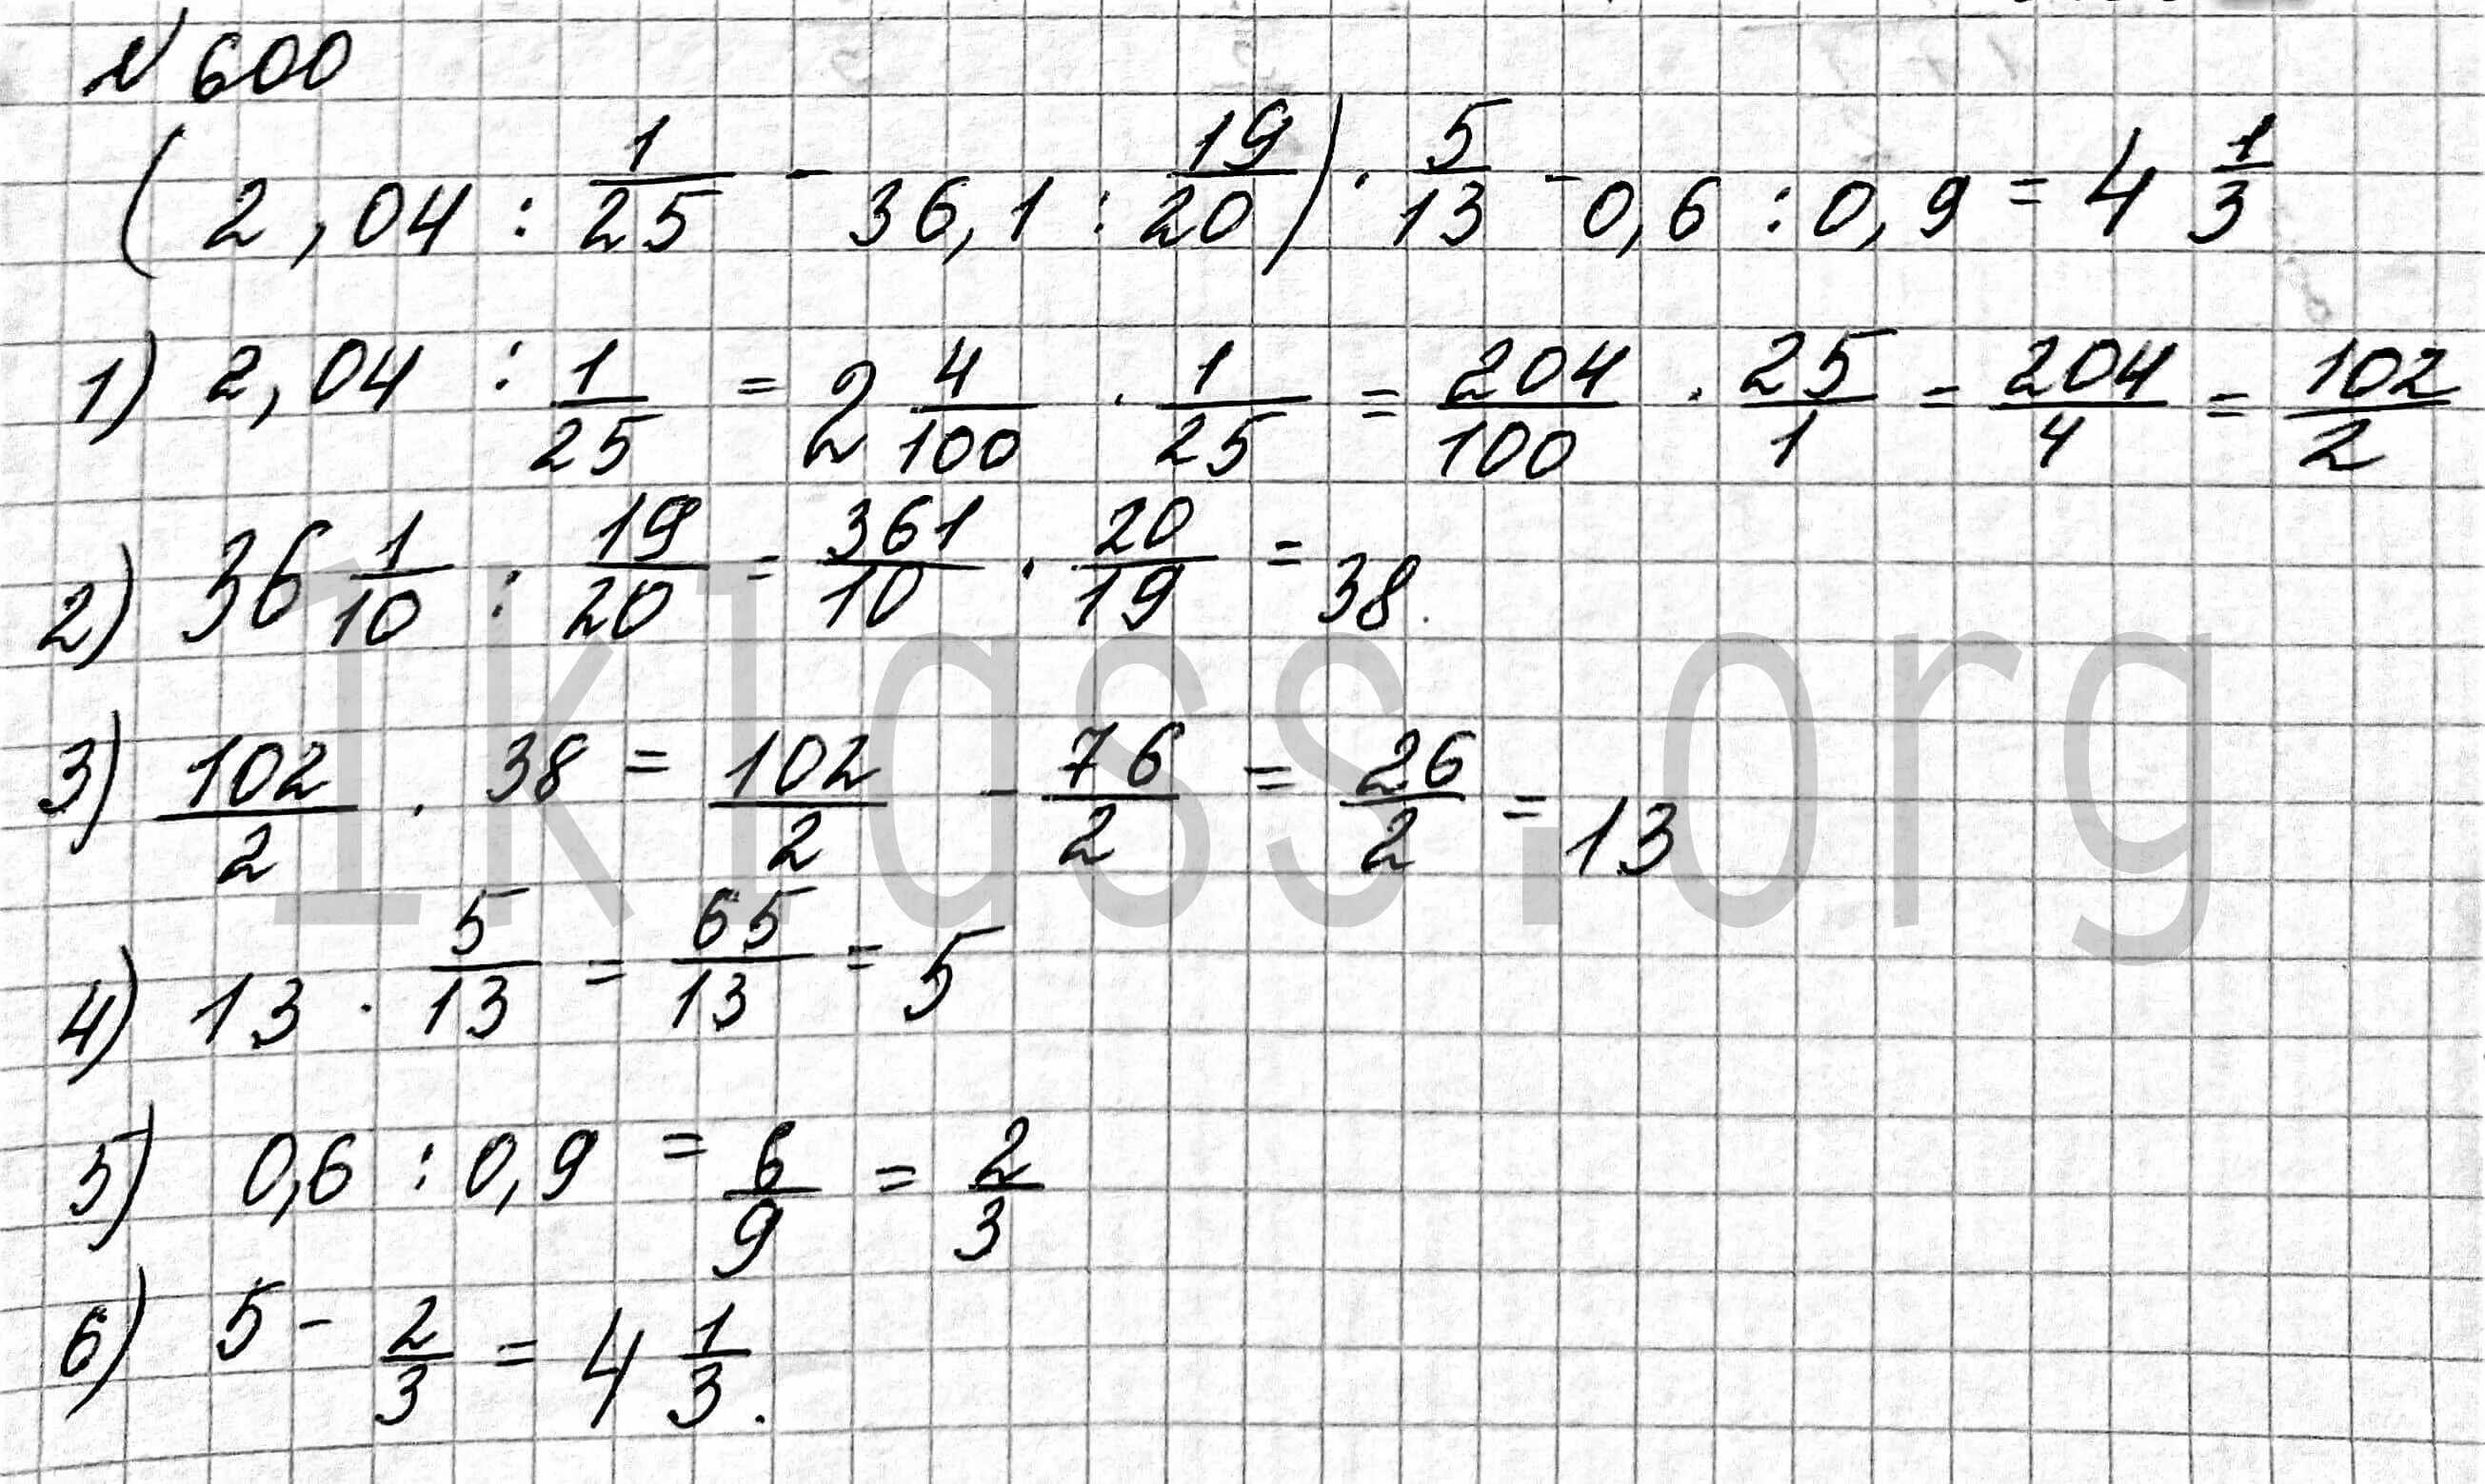 № 600
(2,04 : 1/25 - 36,1 : 19/20) · 5/13 - 0,6 : 0,9 = 4 1/3
1) 2,04 : 1/25 = 2 4/100 · 1/25 = 204/100 · 25/1 = 204/4 = 102/2
2) 36 1/10 : 19/20 = 361/10 · 20/19 = 38.
3) 102/2 · 38 = 102/2 - 76/2 = 26/2 = 13
4) 13 · 5/13 = 65/13 = 5
5) 0,6 : 0,9 = 6/9 = 2/3
6) 5 - 2/3 = 4 1/3.
1klass.org